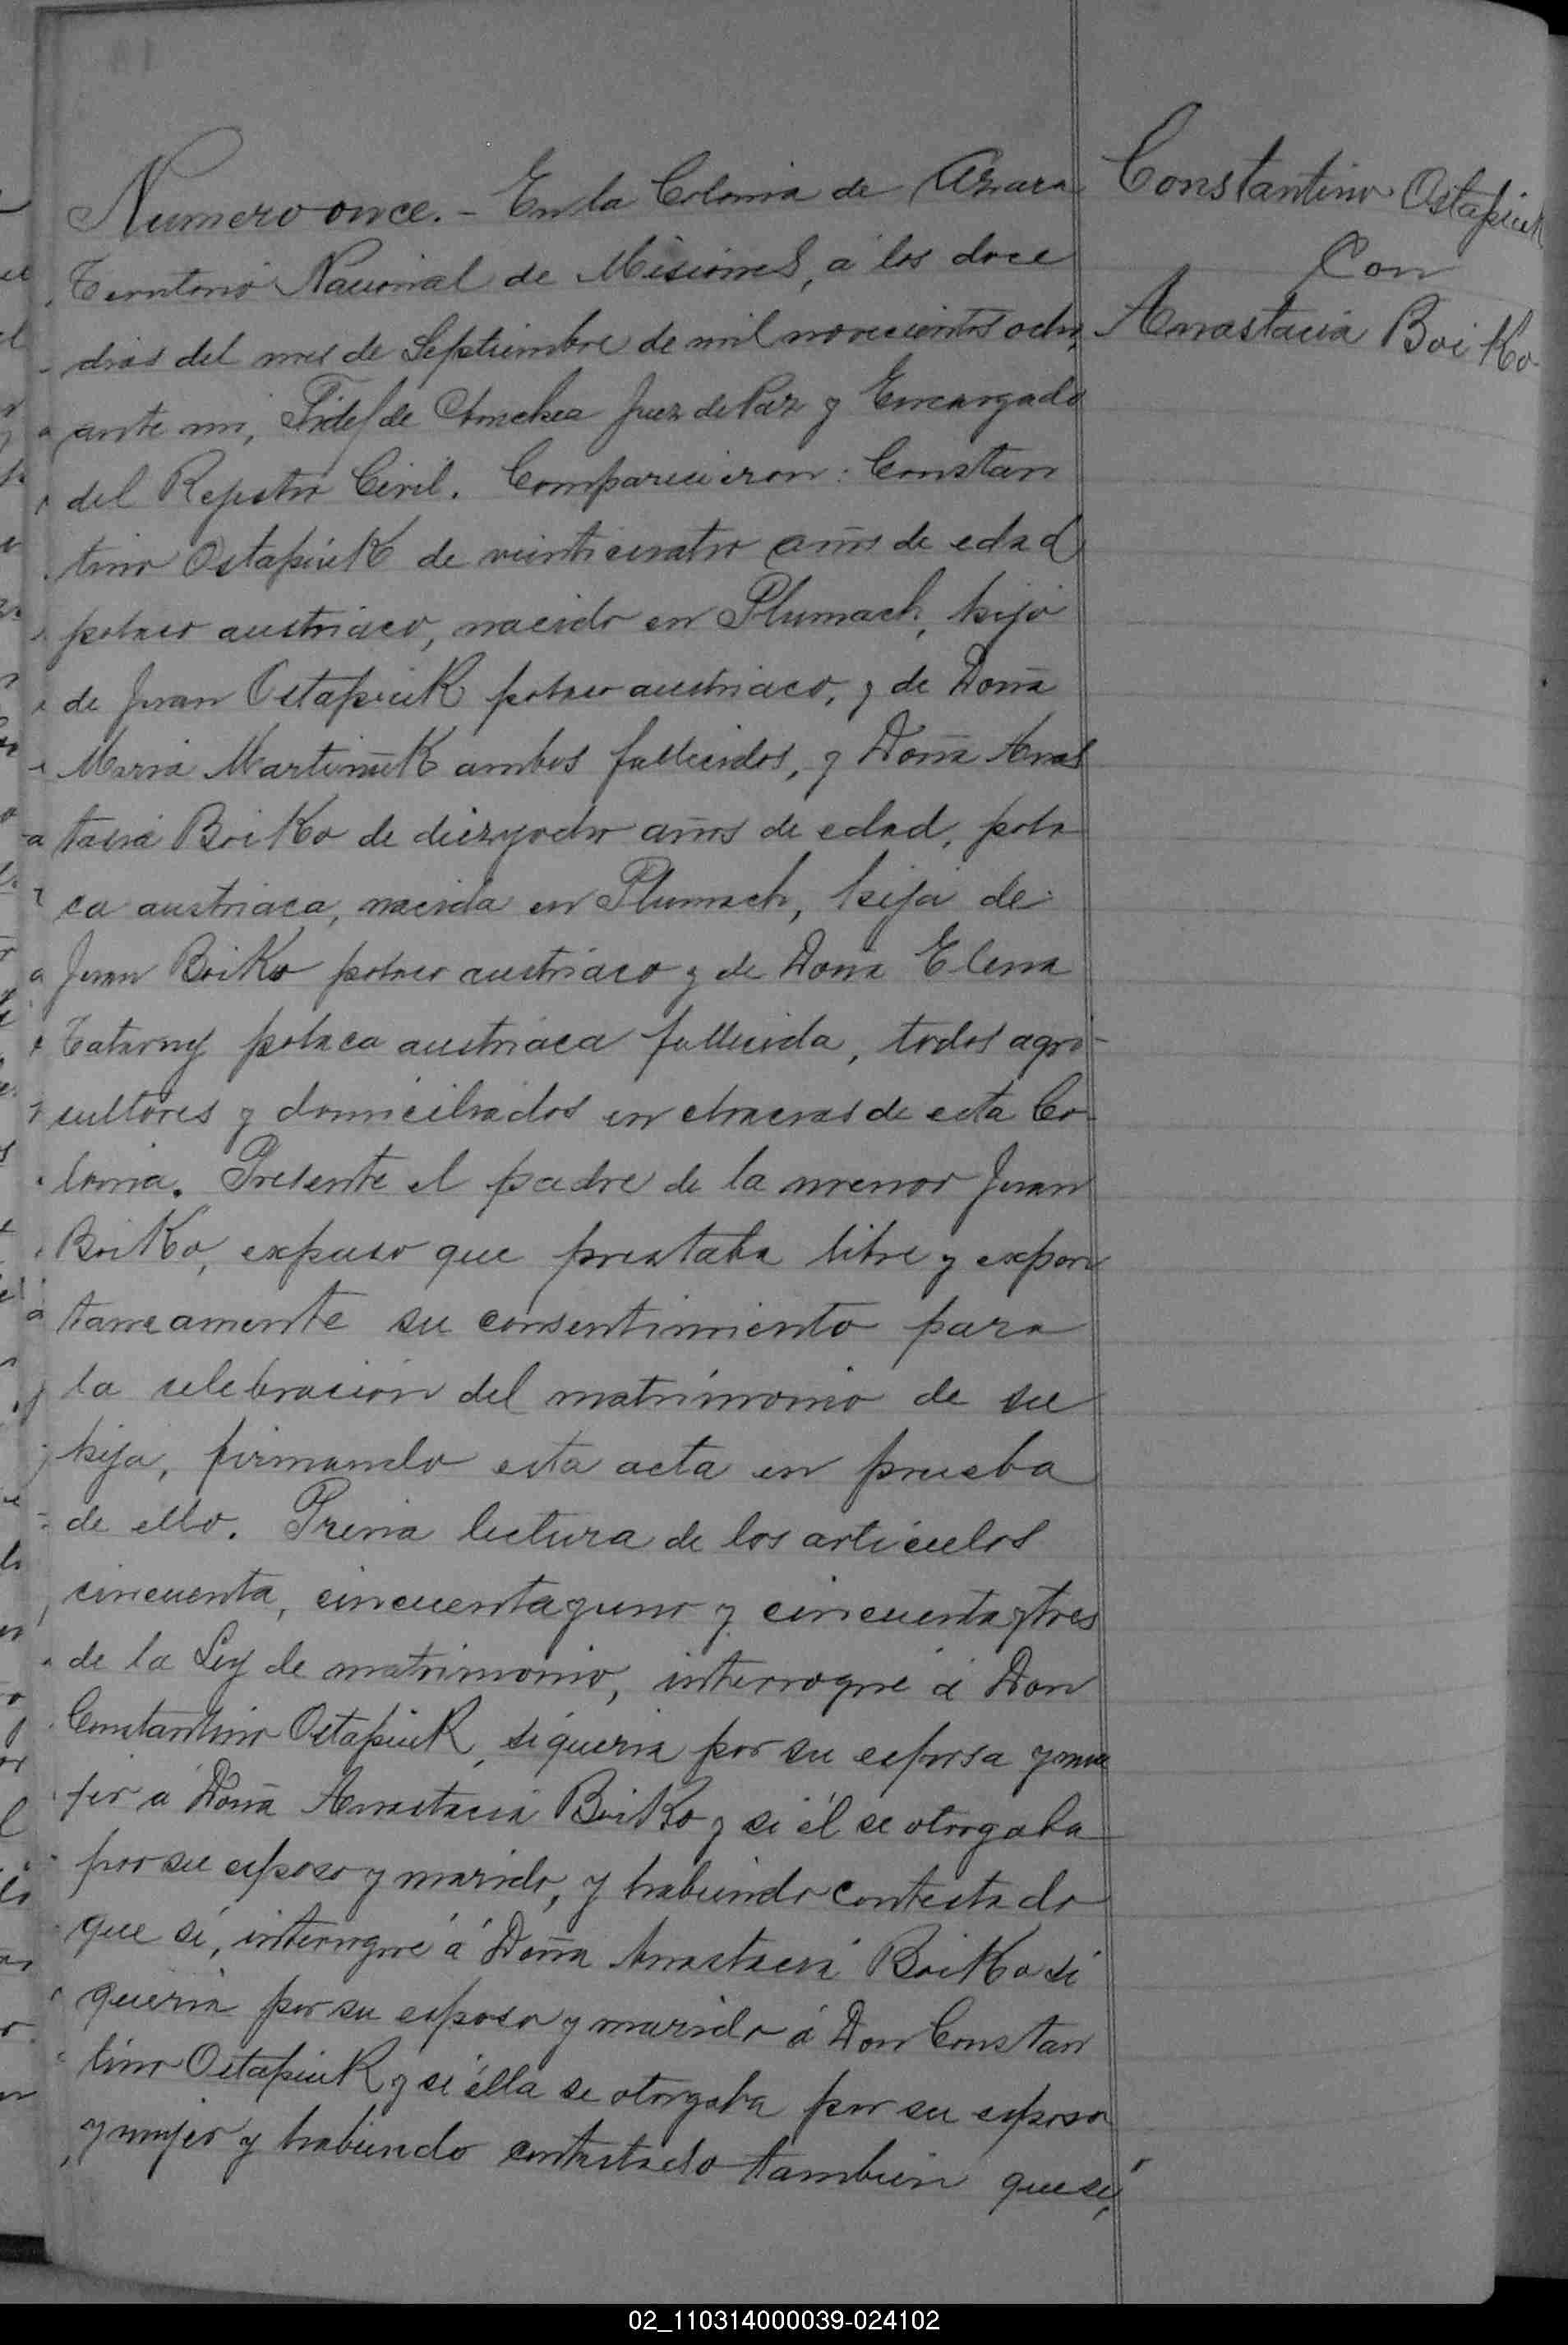 Numero once. - En la Colonia de Azara
Territorio Nacional de Misiones, á los doce
dias del mes de Septiembre de mil novecientos ocho,
ante mi, Fidel de Juez de Paz y Encargado
del Registro Civil. Comparecieron: Constan
tino Ostapiuk de veinticuatro años de edad
polaco austriaco, nacido en Tlumach, hijo
de Juan Ostapiuk polaco austriaco, y de Doña
Maria Martiniuk ambos fallecidos, y Doña Anas
tacia Boiko de diezyocho años de edad, pola
ca austriaca, nacida en Tlumach, hija de
Juan Boiko polaco austriaco y de Doña Elena
Tatarny polaca austriaca fallecida, todos agri-
cultores y domiciliados en chacras de esta Co-
lonia. Presente el padre de la menor Juan
Boiko, expuso que prestaba libre y expon
taneamente su consentimiento para
la celebracion del matrimonio de su
hija, firmando esta acta en prueba
de ello. Previa lectura de los articulos
cincuenta, cincuentayuno y cincuentaytres
de la Ley de matrimonio, interrogué á Don
Constantino Ostapiuk, si queria por su esposa y mu
jer á Doña Anastacia Boiko y si él se otorgaba
por su esposo y marido, y habiendo contestado
que sí, interrogué á Doña Anastacia Boiko si
queria por su esposo y marido á Don Constan
tino Ostapiuk y si élla se otorgaba por su esposa
y mujer y habiendo contestado tambien que sí,
Constantino Ostapiuk
Con
Anastacia Boiko
02_110314000039-024102